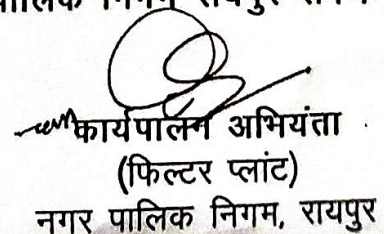 कार्यपालन अभियंता
(फिल्टर प्लांट)
नगर पालिक निगम, रायपुर